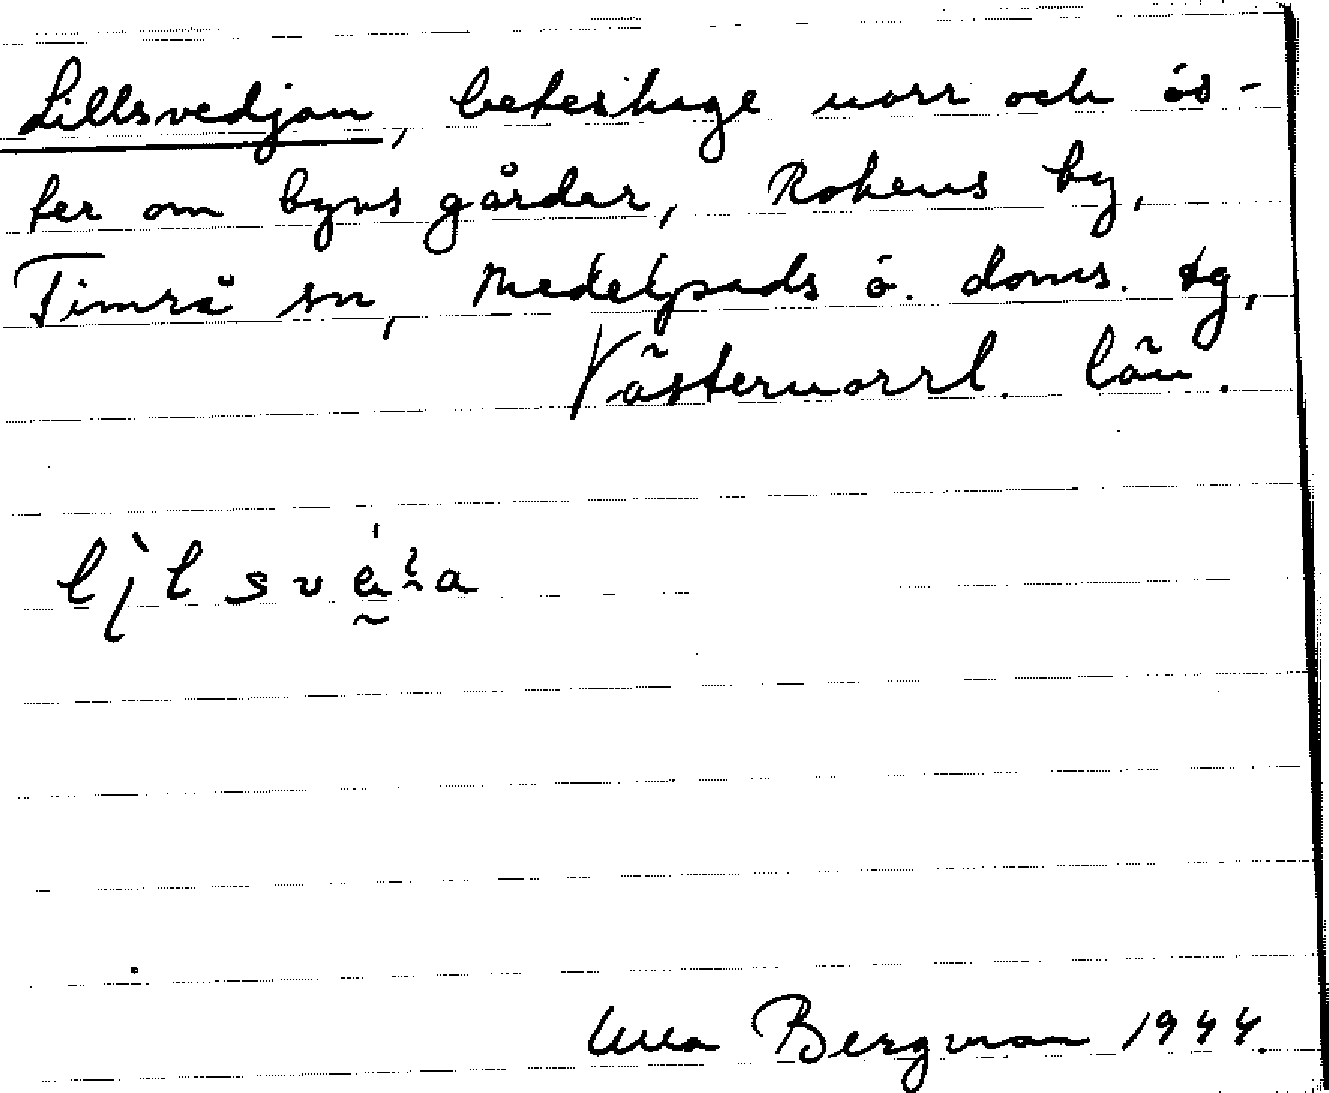 Lillsvedjan, beteshage norr och ös-
ter om byns gårdar, Rokens by,
Timrå sn, Medelpads ö. doms. tg,
Västernorrl. län.
Ulla Bergman 1944.